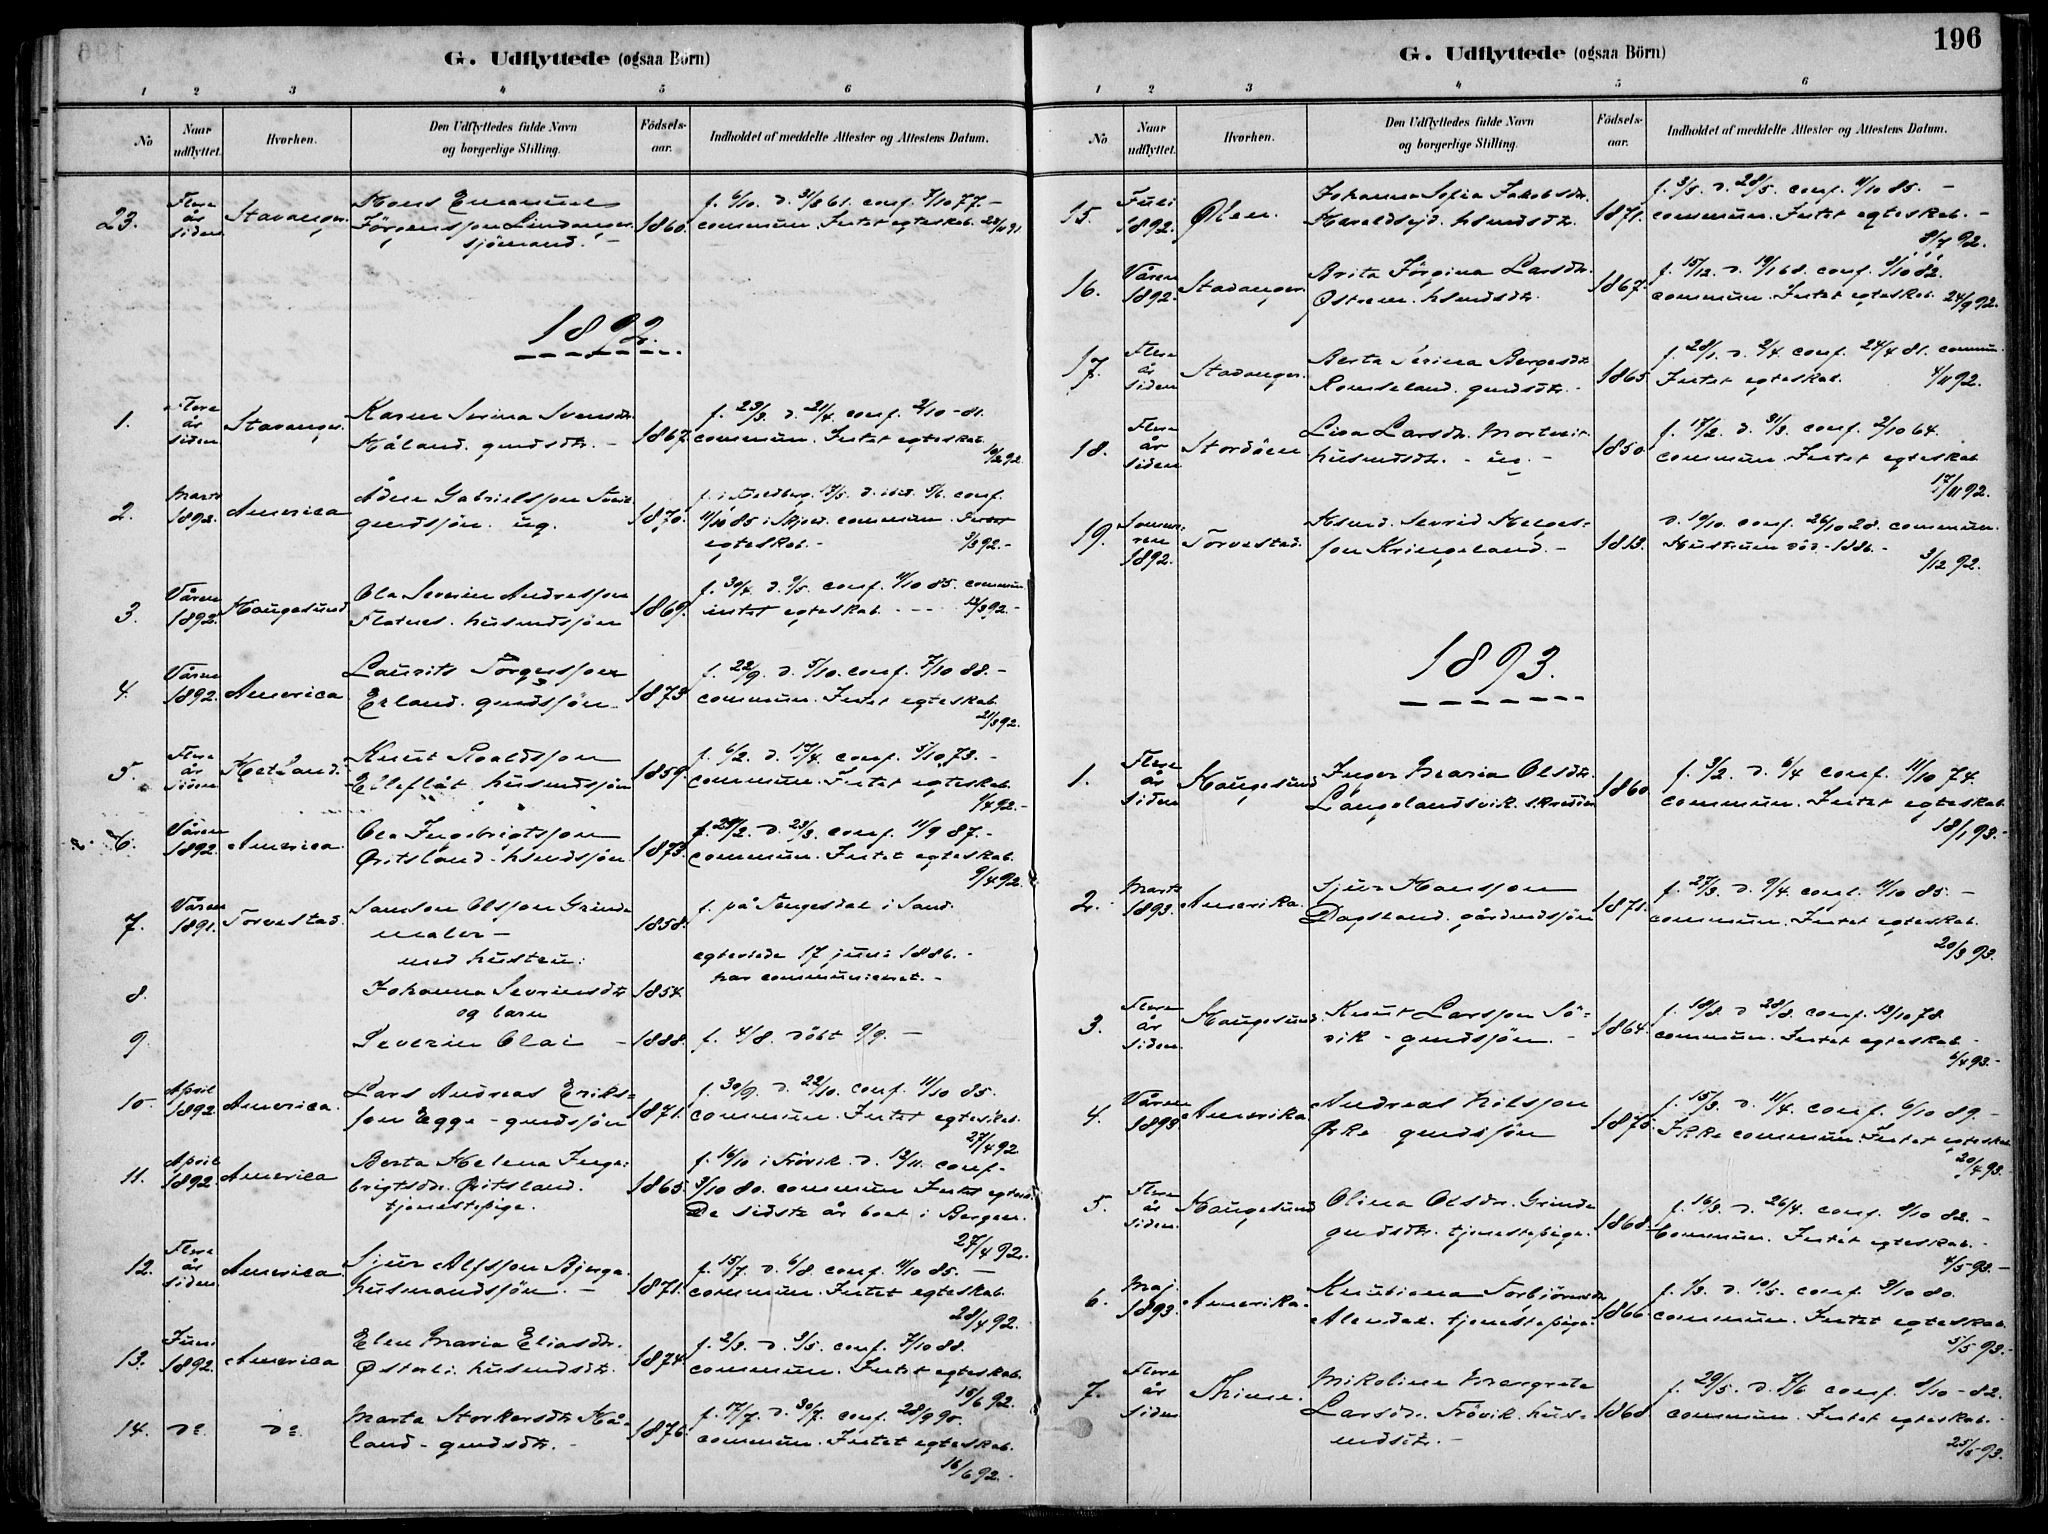 G. Udflyttede (ogsaa Börn)
1 2 3 4 5 6
No
Naar udflyttet.
Hvorhen.
Den Udflyttedes fulde Navn
og borgerlige Stilling.
Födsels-
aar.
Indholdet af meddelte Attester og Attestens Datum.
23. Flere år siden Stavanger. Hans Emanuel
Jörgenssen Lindanger
sjömand. –
1860. f. 6/10. d. 31/3 61. conf. 7/10 77. –
commun. Intet egteskab.
1892.
1. Flere år siden Stavanger. Karen Serina Svensdr.
Håland. gmdsdtr. –
1867. f. 23/3. d. 21/4. conf. 2/10 – 81.
commun. Intet egteskab.
10/2 92.
2. Marts 1892. America Ådne Gabrielssen
gmdssön. ug.
1870. 11/10 85 i Skjold. commun. Intet
egteskab. – 3/3 92. –
3. Våren 1892. Haugesund Ola Severin Andreassen
Flatnes. husmdssjön
1869. f. 30/4. d. 9/5. conf. 11/10 85. commun
intet egteskab. 12/3 92. –
4. Våren 1892. America Laurits Torgerssen
Erland. gmdssjön
1873 f. 22/9. d. 5/10. conf. 7/10 88. –
commun. Intet egteskab.
21/3 92.
5. Flere år siden Hetland. Knut Roaldssen
Eileflåt husmdssjön
1859. f. 6/2. d. 17/4. conf. 5/10 73. –
commun. Intet egteskab.
1/4 92. –
6. Våren 1892. America. Ola Ingebrigtssen
Öritsland. hsmdssjön.
1873. f. 25/2. d. 23/3. conf. 11/9 87. –
commun. Intet egteskab.
9/4 92.
7. Våren 1891. Torvestad. Samson Olssen Grinde
maler –
med hustru:
1858. f. på Tengesdal i Sand.
egteviede 17 juni 1886. –
har communiceret. –
8. Johanna Sevrinsdtr 1854.
og barn
9. Severin Olai – 1888. f. 4/8. döbt 9/9. –
10. April 1892 America. Lars Andreas Eriks-
sen Egge – gmdssjön
1871. f. 30/9. d. 22/10. conf. 11/10 85.
commun. Intet egteskab.
27/4 92
11. April 1892. America Berta Helena Inge-
brigtsdr. Öritsland.
tjenestepige.
1865. f. 16/10 i Frövik. d. 12/11. conf.
3/10 80. commun Intet egtesk.
De sidste år boet i Bergen.
27/4 92.
12. Flere år siden America. Sjur Alfssen Bjerga.
husmandssjön. –
1871. f. 15/7. d. 6/8. conf. 11/10 85. –
commun. Intet egteskab.
28/4 92.
13. Juni 1892. America Elen Maria Eliasdr.
Österli. husmdsdtr.
1874. f. 2/3. d. 3/5. conf. 7/10 88.
commun. Intet egteskab.
15/6 92.
14. do. do. Marta Storkersdtr Hå-
land – gmdsdtr. –
1876. f. 17/7. d. 30/7. conf. 28/9 90.
commun. Intet egteskab.
16/6 92. –
196
G. Udflyttede (ogsaa Börn)
1 2 3 4 5 6
No
Naar udflyttet.
Hvorhen.
Den Udflyttedes fulde Navn
og borgerlige Stilling.
Födsels-
aar.
Indholdet af meddelte Attester og Attestens Datum.
15. Juli 1892. Ölen. Johanna Sofia Jakobsdtr.
Haraldsejd. hsmdsdtr.
1871. f. 3/5. d. 28/5. conf. 11/10 85. –
commun. Intet egteskab. –
8/7 92.
16. Våren 1892. Stavanger. Brita Jörgina Larsdtr.
Östrem. hsmdsdtr.
1867. f. 15/12. d. 19/1 68. conf. 8/10 82.
commun. Intet egteskab. 24/9 92.
17. Flere år siden Stavanger. Berta Serina Borgesdtr
Romseland. gmdsdtr. –
1865 f. 28/1. d. 2/4. conf. 24/4 81. commun.
Intet egteskab. 4/11 92.
18. Flere år siden Stordöen Lisa Larsdtr. Mortveit
husmdsdtr. – ug. –
1850. f. 17/2. d. 31/3. conf. 2/10 64.
commun. Intet egteskab
17/11 92.
19. Sommeren 1892. Torvestad. Hsmd. Sevrid Helges-
sen Kringeland. –
1813. d. 10/10. conf. 26/10 28. commun.
Hustruen död – 1886. –
3/12 92.
1893.
1. Flere år siden Haugesund Inger Maria Olsdtr.
Langelandsvik.
1860. f. 3/2. d. 6/4 conf. 11/10 74.
commun. Intet egteskab.
18/1 93. –
2. Marts 1893. Amerika. Sjur Hanssen
Dagsland. gårdmdssjön
1871. f. 27/3. d. 9/4. conf. 11/10 85. –
commun. Intet egteskab.
20/3 93.
3. Flere år siden. Haugesund. Knut Larssen Sö-
vik – gmdssjön. –
1864. f. 18/8. d. 28/8. conf. 13/10 78.
commun. Intet egteskab –
6/4 93. –
4. Våren 1893 Amerika. Andreas Nilssen
Örke gmdssjön
1875. f. 15/3. d. 11/4. conf. 6/10 89. –
Ikke commun. Intet egteskab
20/4 93.
5. Flere år siden. Haugesund Olina Olsdtr. Grinde
gmdsdtr. tjenestepige.
1868. f. 16/3. d. 26/4. conf. 8/10 82. –
Commun. Intet egteskab. –
4/5 93. –
6. Maj 1893. Amerika. Knutiana Torbjörnsdtr
Alendal. tjenestepige
1866. f. 9/3. d. 10/5. conf. 3/10 80.
commun. Intet egteskab.
5/5 93. –
7. Flere år siden Thime. Nikoline Margrete
Larsdtr. Frövik. hus-
mdsdtr. –
1868 f. 29/5. d. 7/6 conf. 8/10 – 82.
commun. Intet egteskab. –
25/5 93.